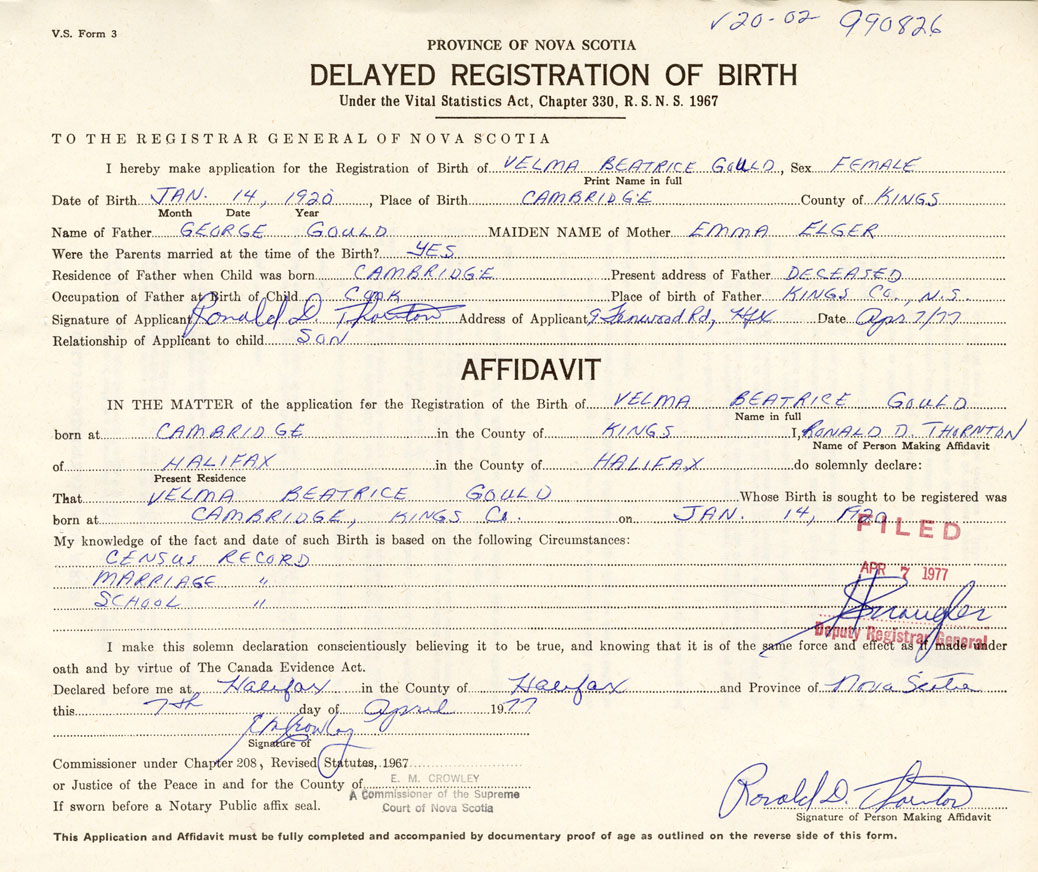 V.S. Form 3
V20-02 990826
PROVINCE OF NOVA SCOTIA
DELAYED REGISTRATION OF BIRTH
Under the Vital Statistics Act, Chapter 330, R. S. N. S. 1967
TO THE REGISTRAR GENERAL OF NOVA SCOTIA
I hereby make application for the Registration of Birth of VELMA BEATRICE GOULD, Sex FEMALE
Print Name in full
Date of Birth JAN. 14, 1920, Place of Birth CAMBRIDGE County of KINGS
Month Date Year
Name of Father GEORGE GOULD MAIDEN NAME of Mother EMMA ELGER
Were the Parents married at the time of the Birth? YES
Residence of Father when Child was born CAMBRIDGE Present address of Father DECEASED
Occupation of Father at Birth of Child COOK Place of birth of Father KINGS Co., N.S.
Signature of Applicant Ronald D. Thornton Address of Applicant 9 Rd, Hfx Date Apr 7/77
Relationship of Applicant to child SON
AFFIDAVIT
IN THE MATTER of the application for the Registration of the Birth of VELMA BEATRICE GOULD
Name in full
born at CAMBRIDGE in the County of KINGS I, RONALD D. THORNTON
Name of Person Making Affidavit
of HALIFAX in the County of HALIFAX do solemnly declare:
Present Residence
That VELMA BEATRICE GOULD Whose Birth is sought to be registered was
born at CAMBRIDGE, KINGS Co. on JAN. 14, 1920
FILED
My knowledge of the fact and date of such Birth is based on the following Circumstances:
CENSUS RECORD
MARRIAGE "
APR 7 1977
SCHOOL "
Deputy Registrar General
I make this solemn declaration conscientiously believing it to be true, and knowing that it is of the same force and effect as if made under
oath and by virtue of The Canada Evidence Act.
Declared before me at Halifax in the County of Halifax and Province of Nova Scotia
this 7th day of April 1977
EM Crowley
Signature of
Commissioner under Chapter 208, Revised Statutes, 1967
or Justice of the Peace in and for the County of E. M. CROWLEY
A Commissioner of the Supreme
If sworn before a Notary Public affix seal. Court of Nova Scotia
Ronald D. Thornton
Signature of Person Making Affidavit
This Application and Affidavit must be fully completed and accompanied by documentary proof of age as outlined on the reverse side of this form.